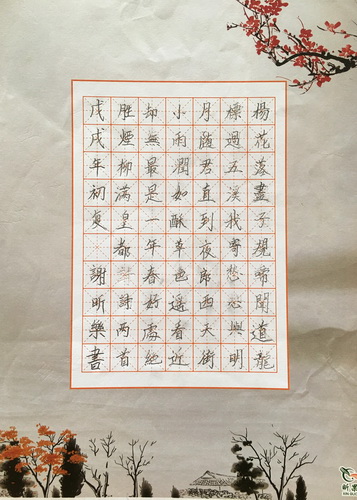 楊花落盡子規啼聞道龍
標過五溪我寄愁心與明
月隨君直到夜郎西天街
小雨潤如酥草色遥看近
却無最是一年春好處絶
胜煙柳滿皇都詩两首
戊戌年初夏謝昕樂書